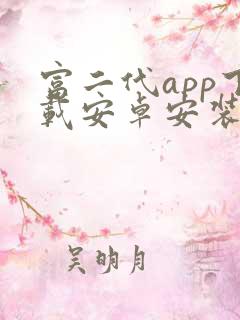 富二代app下
载安卓安装
吴明月